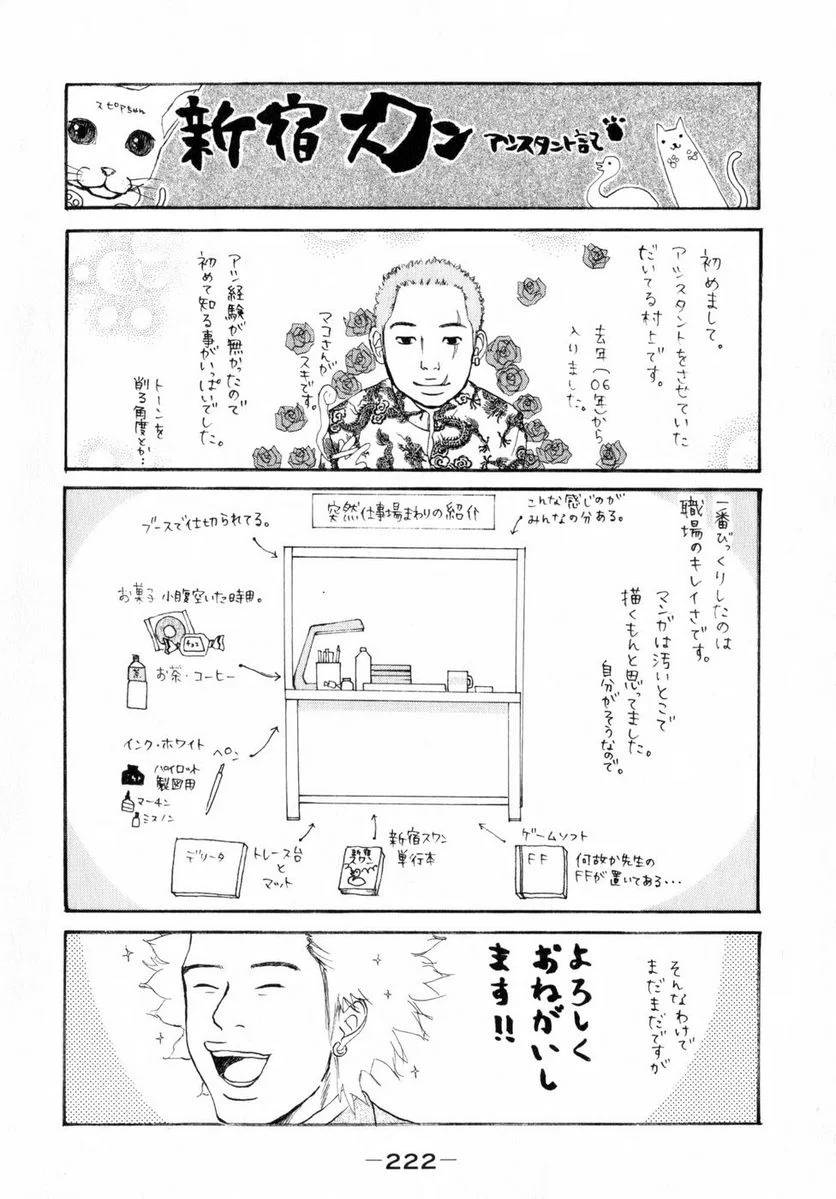 スピアちゃん
新宿スワン
アシスタント記
初めまして。
アシスタントをさせていた
だいてる村上です。
去年('06年)から
入りました。
マコさんが
スキです。
アシ経験が無かったので
初めて知る事がいっぱいでした。
トーンを
削る角度とか…
一番びっくりしたのは
職場のキレイさです。
マンガは汚いとこで
描くもんと思ってました。
自分がそうなので。
突然仕事場まわりの紹介
こんな感じのが
みんなの分ある。
ブースで仕切られてる。
お菓子 小腹空いた時用。
チョコ
茶
お茶・コーヒー
インク・ホワイト
ペン
パイロット
製図用
マーチン
ミスノン
デリータ
トレース台
と
マット
新宿
スワン
新宿スワン
単行本
ゲームソフト
FF
何故か先生の
FFが置いてある…
そんなわけで
まだまだですが
よろしく
おねがいし
ます!!
-222-